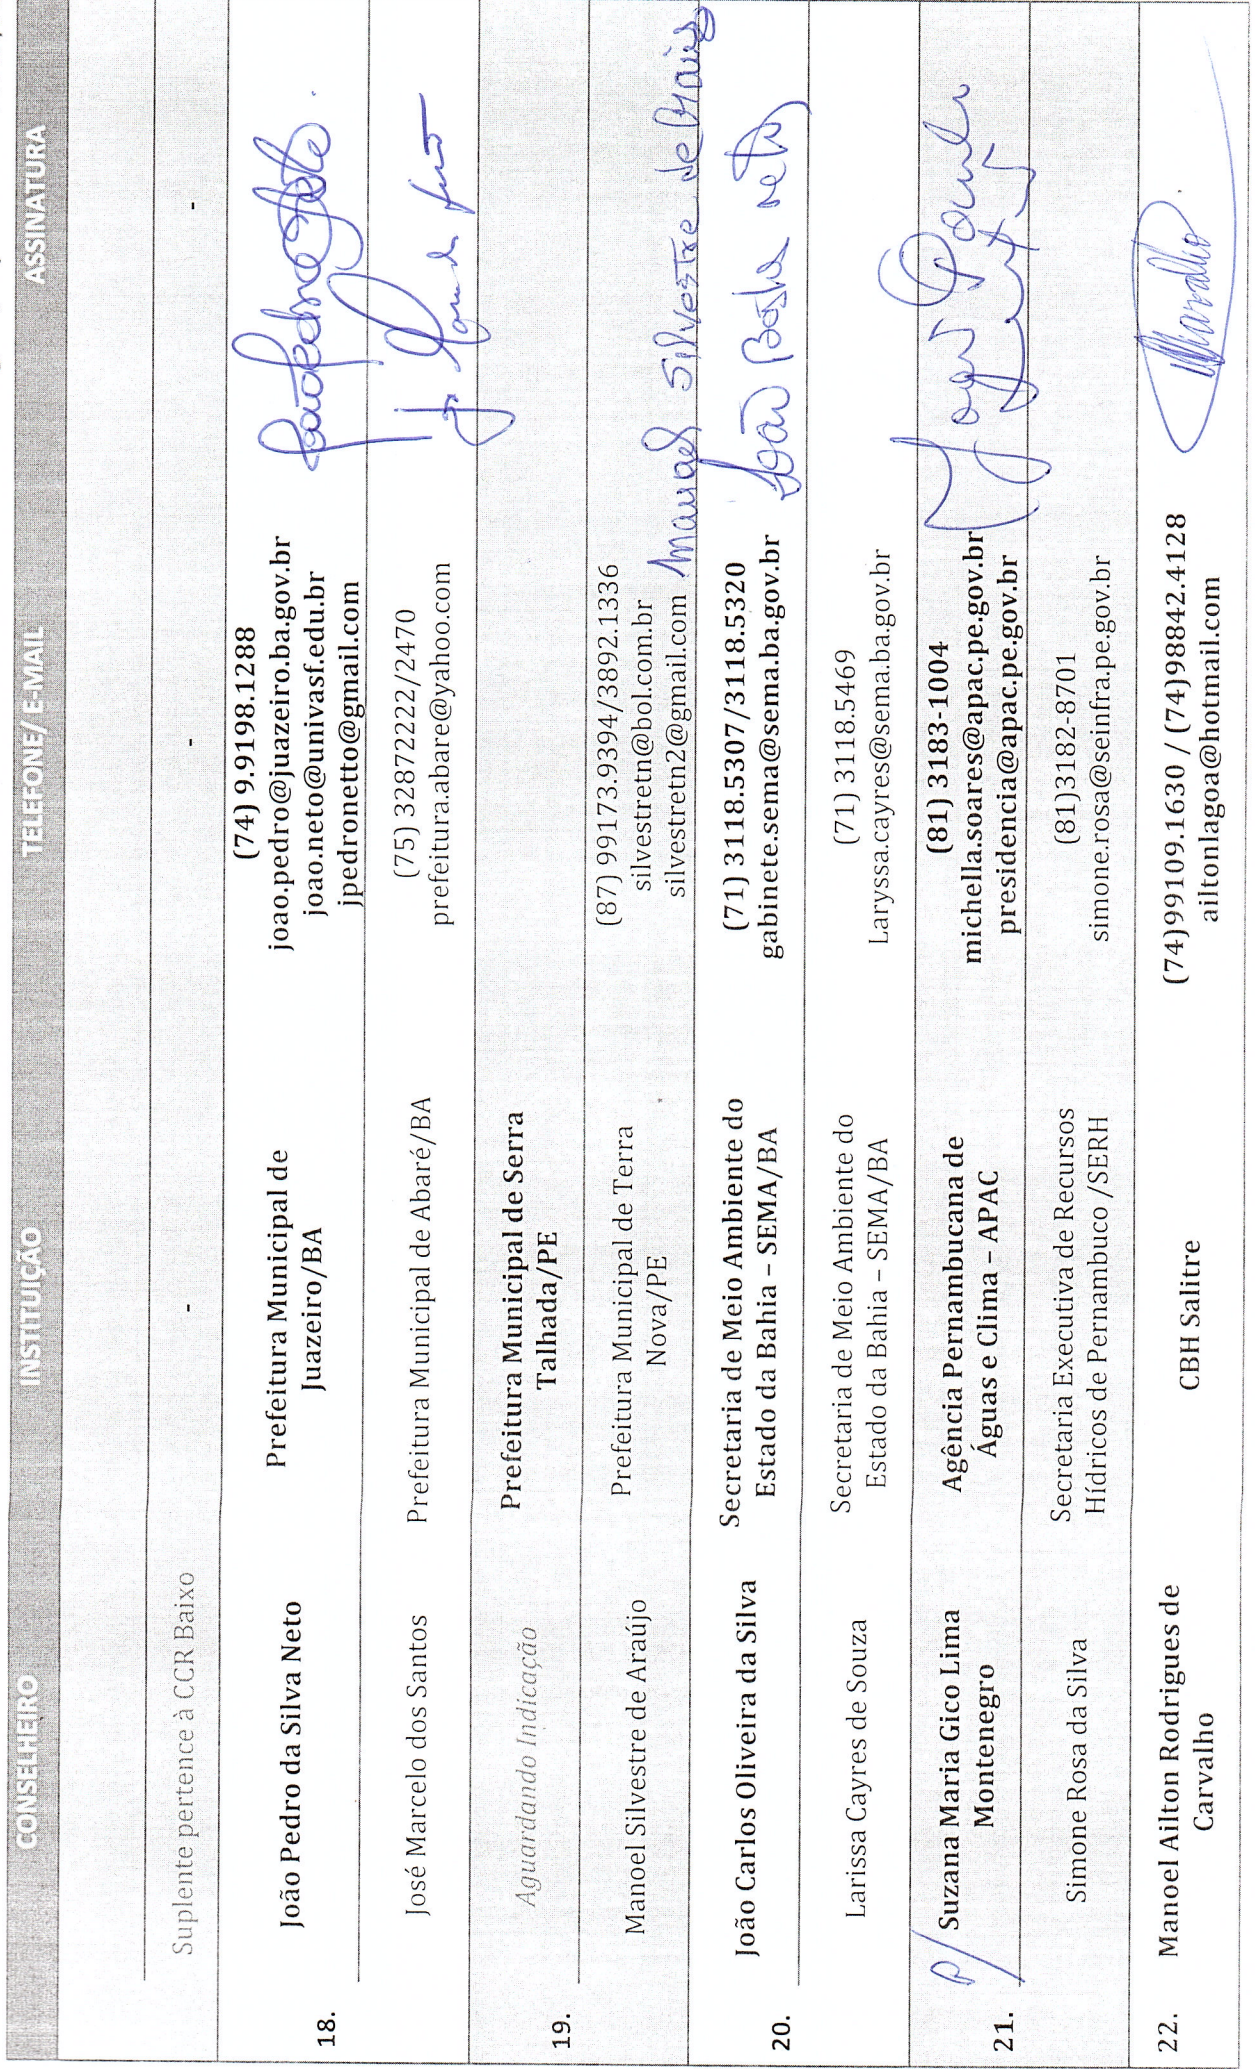 CONSELHEIRO INSTITUIÇÃO TELEFONE/ E-MAIL ASSINATURA
Suplente pertence à CCR Baixo - - -
18.
João Pedro da Silva Neto
Prefeitura Municipal de
Juazeiro/BA
(74) 9.9198.1288
joao.pedro@juazeiro.ba.gov.br
joao.neto@univasf.edu.br
jpedronetto@gmail.com
José Marcelo dos Santos
Prefeitura Municipal de Abaré/BA
(75) 32872222/2470
prefeitura.abare@yahoo.com
19.
Aguardando Indicação
Prefeitura Municipal de Serra
Talhada/PE
Manoel Silvestre de Araújo
Prefeitura Municipal de Terra
Nova/PE
(87) 99173.9394/3892.1336
silvestretn@bol.com.br
silvestretn2@gmail.com
20.
João Carlos Oliveira da Silva
Secretaria de Meio Ambiente do
Estado da Bahia – SEMA/BA
(71) 3118.5307/3118.5320
gabinete.sema@sema.ba.gov.br
Larissa Cayres de Souza
Secretaria de Meio Ambiente do
Estado da Bahia – SEMA/BA
(71) 3118.5469
Laryssa.cayres@sema.ba.gov.br
21.
P/
Suzana Maria Gico Lima
Montenegro
Agência Pernambucana de
Águas e Clima – APAC
(81) 3183-1004
michella.soares@apac.pe.gov.br
presidencia@apac.pe.gov.br
Simone Rosa da Silva
Secretaria Executiva de Recursos
Hídricos de Pernambuco /SERH
(81)3182-8701
simone.rosa@seinfra.pe.gov.br
22.
Manoel Ailton Rodrigues de
Carvalho
CBH Salitre
(74)99109.1630 / (74)98842.4128
ailtonlagoa@hotmail.com